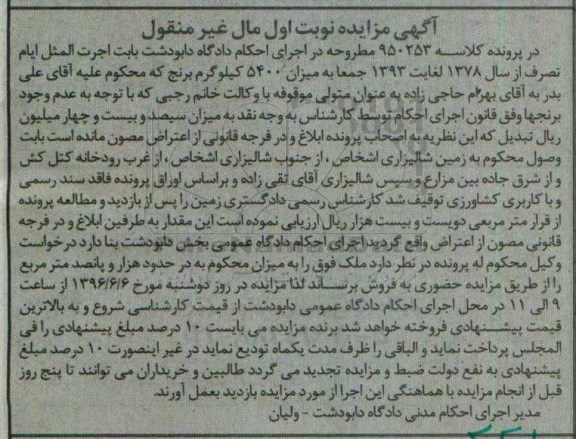 آگهی مزایده نوبت اول مال غیر منقول
در پرونده کلاسه ۹۵۰۲۵۳ مطروحه در اجرای احکام دادگاه دابودشت بابت اجرت المثل ایام
تصرف از سال ۱۳۷۸ لغایت ۱۳۹۳ جمعا به میزان ۵۴۰۰ کیلوگرم برنج که محکوم علیه آقای علی
بدر به آقای بهرام حاجی زاده به عنوان متولی موقوفه با وکالت خانم رجبی که با توجه به عدم وجود
برنجها وفق قانون اجرای احکام توسط کارشناس به وجه نقد به میزان سیصد و بیست و چهار میلیون
ریال تبدیل که این نظریه به اصحاب پرونده ابلاغ و در فرجه قانونی از اعتراض مصون مانده است بابت
وصول محکوم به زمین شالیزاری اشخاص ، از جنوب شالیزاری اشخاص ، از غرب رودخانه کتل کش
و از شرق جاده بین مزارع و سپس شالیزاری آقای تقی زاده و براساس اوراق پرونده فاقد سند رسمی
و با کاربری کشاورزی توقیف شد کارشناس رسمی دادگستری زمین را پس از بازدید و مطالعه پرونده
از قرار متر مربعی دویست و بیست هزار ریال ارزیابی نموده است این مقدار به طرفین ابلاغ و در فرجه
قانونی مصون از اعتراض واقع گردید اجرای احکام دادگاه عمومی بخش دابودشت بنا دارد درخواست
وکیل محکوم له پرونده در نظر دارد ملک فوق را به میزان محکوم به در حدود هزار و پانصد متر مربع
را از طریق مزایده حضوری به فروش برساند لذا مزایده در روز دوشنبه مورخ ۱۳۹۶/۶/۶ از ساعت
۹ الی ۱۱ در محل اجرای احکام دادگاه عمومی دابودشت از قیمت کارشناسی شروع و به بالاترین
قیمت پیشنهادی فروخته خواهد شد برنده مزایده می بایست ۱۰ درصد مبلغ پیشنهادی را فی
المجلس پرداخت نماید و الباقی را ظرف مدت یکماه تودیع نماید در غیر اینصورت ۱۰ درصد مبلغ
پیشنهادی به نفع دولت ضبط و مزایده تجدید می گردد طالبین و خریداران می توانند تا پنج روز
قبل از انجام مزایده با هماهنگی این اجرا از مورد مزایده بازدید بعمل آورند.
مدیر اجرای احکام مدنی دادگاه دابودشت - ولیان